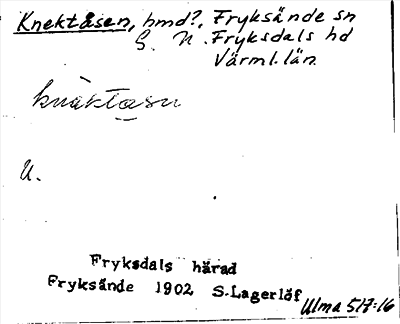 Knektåsen, hmd?, Fryksände sn
G. N. Fryksdals hd
Värml. län
knäktåsn
U.
Fryksdals härad
Fryksände 1902 S.Lagerlöf
Ulma 517:16